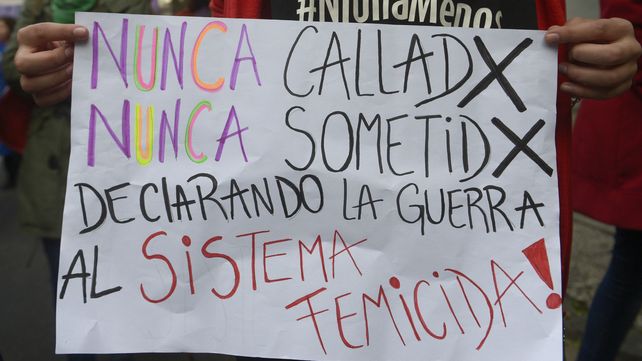 #NiUnaMenos
NUNCA CALLADX
NUNCA SOMETIDX
DECLARANDO LA GUERRA
AL SISTEMA
FEMICIDA!